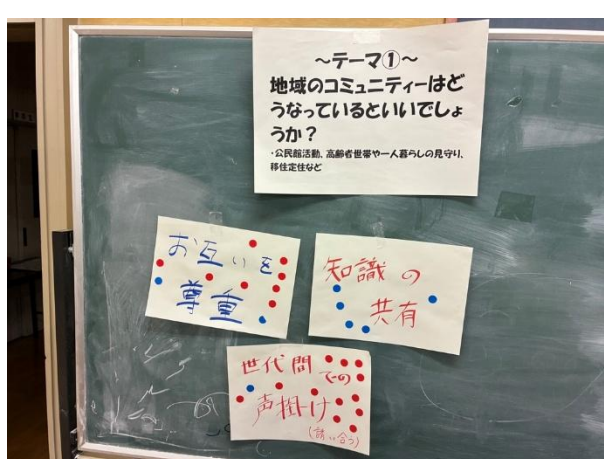 ～テーマ①～
地域のコミュニティーはど
うなっているといいでしょ
うか？
・公民館活動、高齢者世帯や一人暮らしの見守り、
移住定住など
お互いを
尊重
知識の
共有
世代間での
声掛け
(誘い合う)